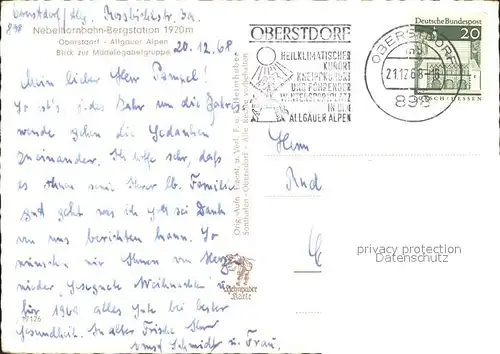 Oberstdorf/Allg.
898
Nebelhornbahn-Bergstation 1920m
Oberstdorf - Allgäuer Alpen
Blick zur Mädelegabelgruppe
20.12.68.
Mein lieber Herr Pampel!
So ist's jedes Jahr um die Jahres
wende gehen die Gedanken
zueinander. Ich hoffe sehr, daß
es Ihnen samt Ihrer lb. Familie
gut geht was ich Gott sei Dank
von uns berichten kann. So
wünschen wir Ihnen von Herzen
Gesegnete Weihnachten u.
für 1969 alles Gute bei bester
Gesundheit. In alter Frische Ihr
Ernst Schmidt u. Frau.
19126
Orig.-Aufn., Eigent. u. Verl. F.
Sonthofen-Oberstdorf - Alle Rechte vorbehalten
Heimhuber
Karte
OBERSTDORF
HEILKLIMATISCHER
KURORT
KNEIPPKURORT
UND FÜHRENDER
WINTERSPORTPLATZ
IN DEN
ALLGÄUER ALPEN
OBERSTDORF
21.12.68-16
898
Deutsche Bundespost
20
LORSCH-HESSEN
Herrn
Rud
privacy protection
Datenschutz